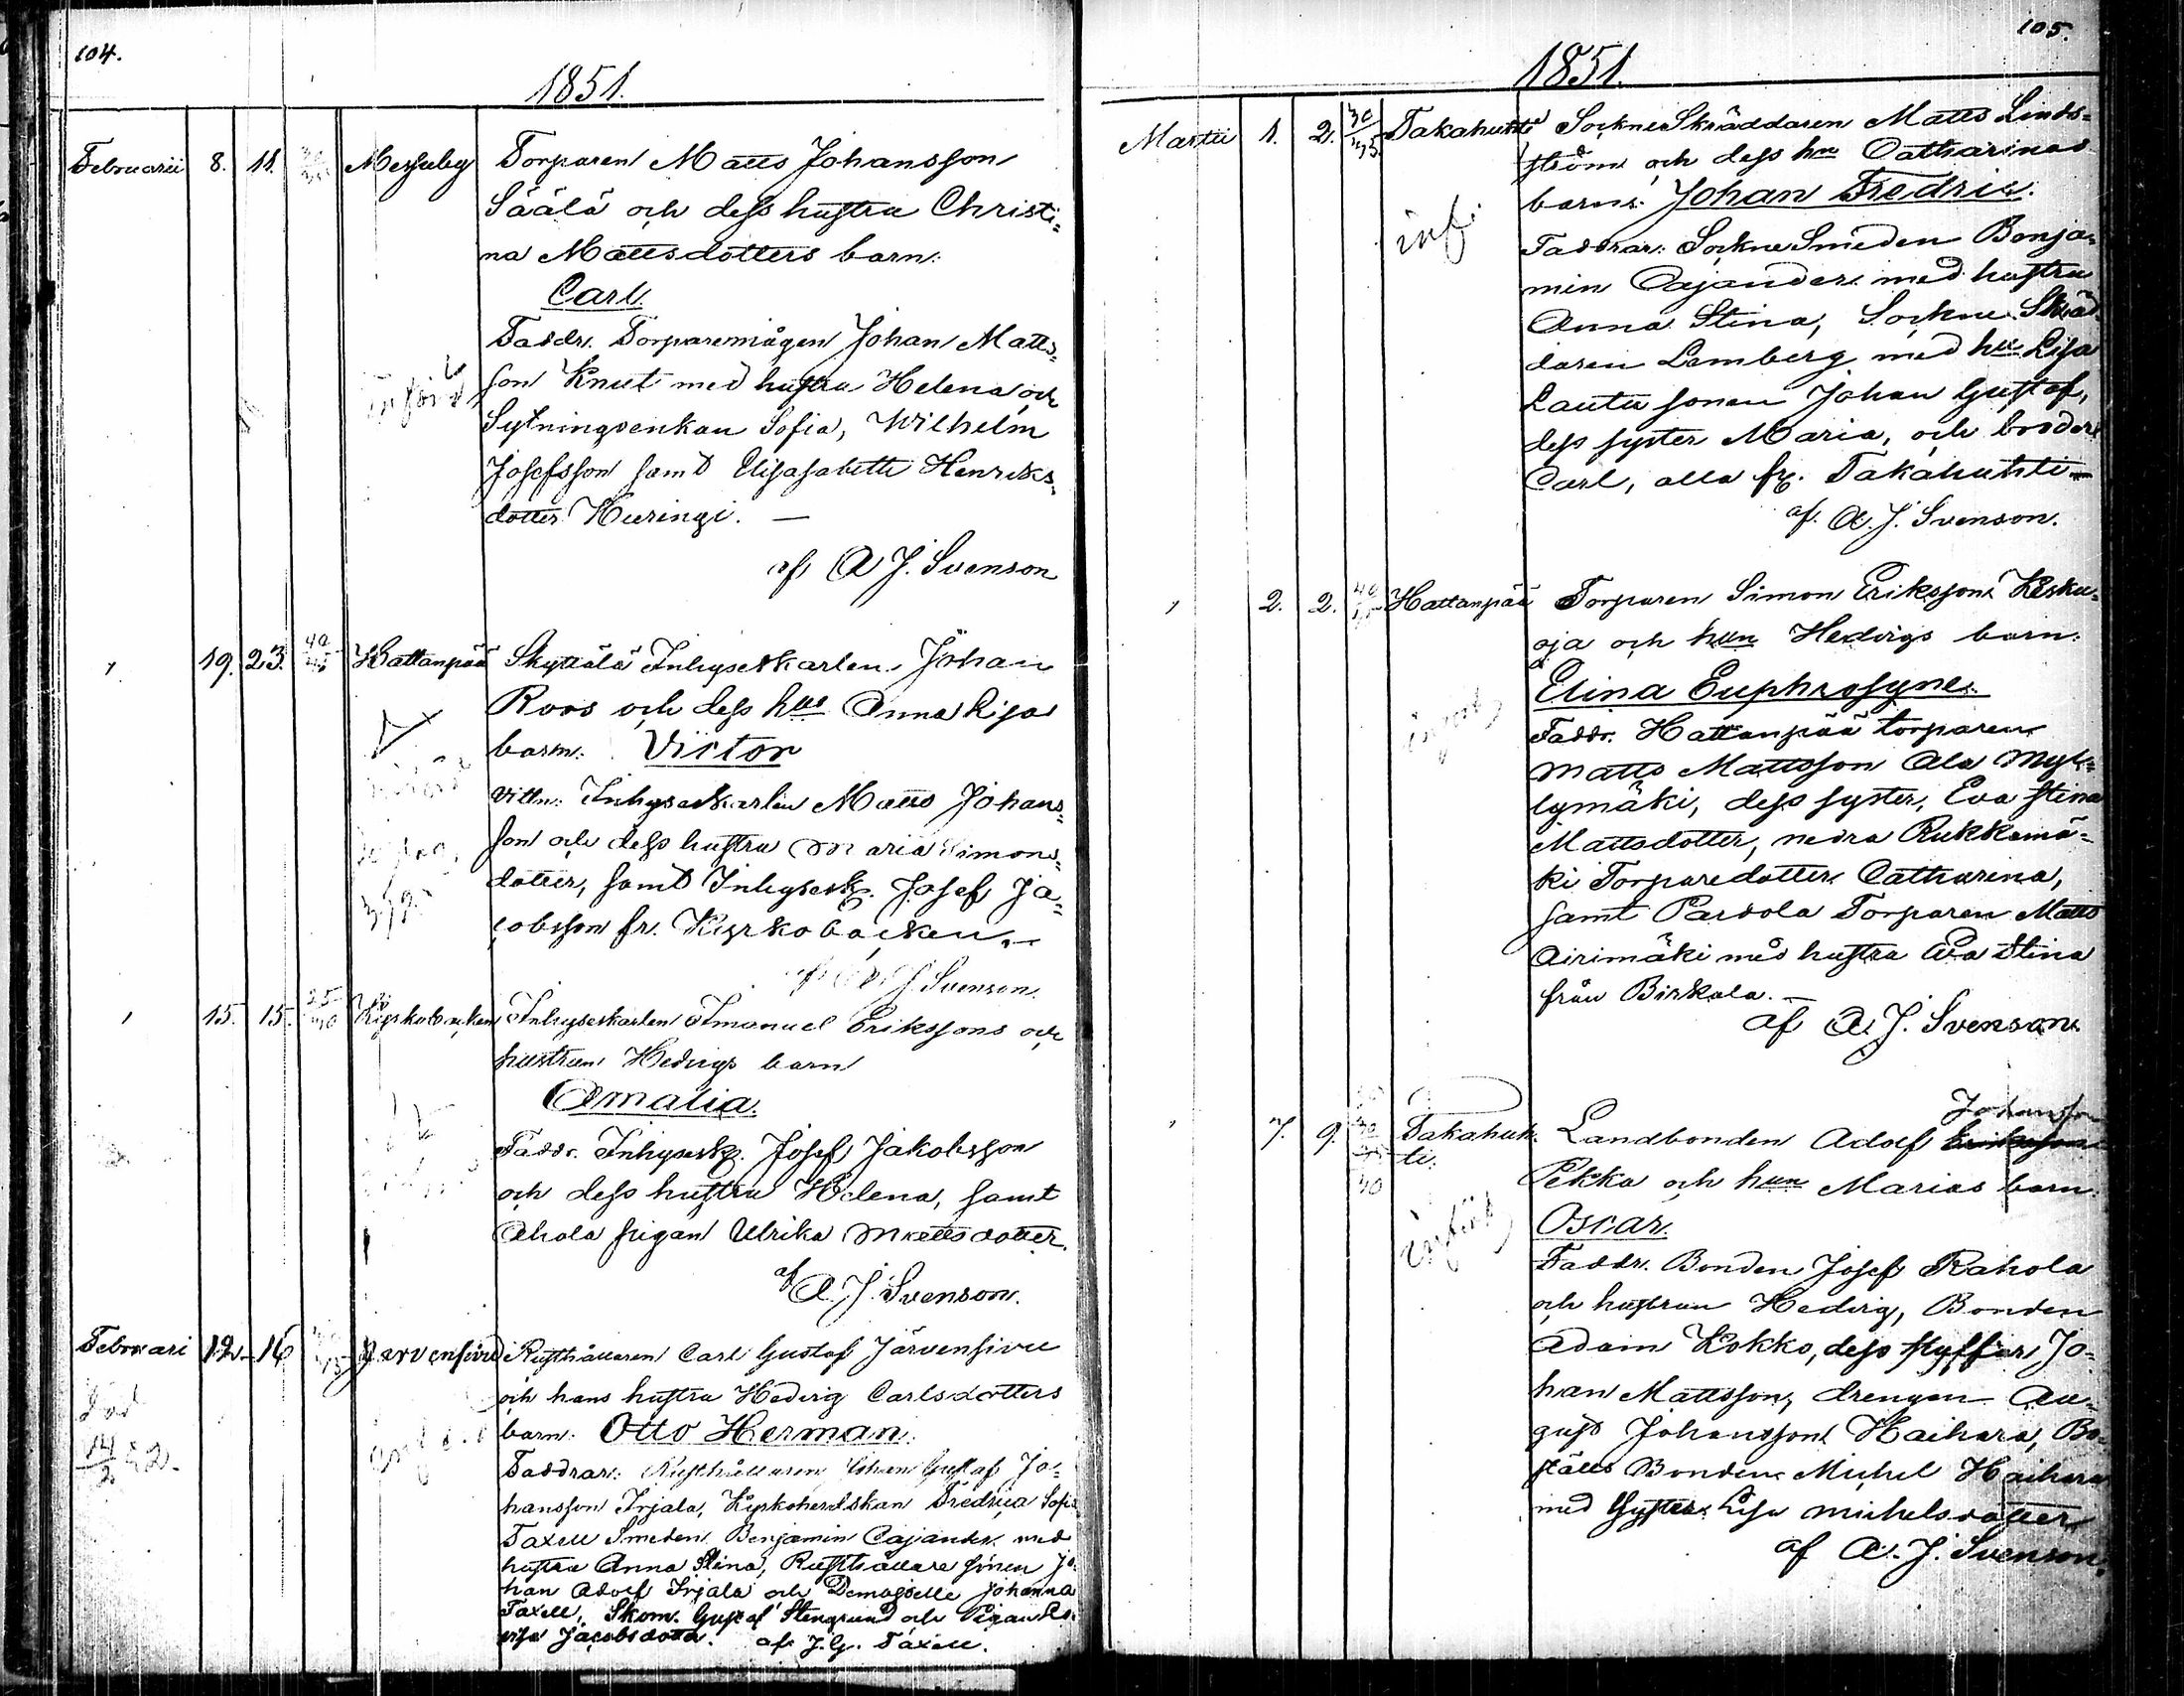 104.
1851.
Februarii 8. 11. Messuby Torparen Matts Johansson
Säälä och dess hustru Christi=
na Mattsdotters barn:
Carl.
Faddr. Torparemågen Johan Matts=
son Knut med hustru Helena och
Sytningsenkan Sofia, Wilhelm
Josefsson samt Elisasabeth Henriks=
dotter Kuringi. —
af A J. Svenson
" 19. 23. 40/45 Hattanpää Skyttälä Inhyseskarlen Johan
Roos och dess hus Anna Lisas
barn: Victor
Vittn: Inhyseskarlen Matts Johans=
son och dess hustru Maria Simons=
dotter, samt Inhysesk. Josef Ja=
cobsson fr. Kyrkobacken.—
af A. J. Svenson.
" 15. 15. 25/30 Kyrkobacken Inhyseskarlen Imanuel Erikssons och
hustrun Hedvigs barn
Amalia.
Faddr. Inhysesk. Josef Jakobsson
och dess hustru Helena, samt
Ahola pigan Ulrika Mattsdotter.
af A. J. Svenson.
Februari 12. 16 Jarvensivu Rusthållaren Carl Gustaf Järvensivu
och hans hustru Hedvig Carlsdotters
barn: Otto Herman.
Död
14/2 52.
Faddrar: Rusthållaren Johan Gustaf Jo=
hansson Irjala, Kyrkoherdskan Fredrica Sofia
Taxell Smeden Benjamin Cajander med
hustru Anna Stina, Rusthållare sonen Jo=
han Adolf Irjala och Demoiselle Johanna
Taxell, Skom. Gustaf Stengrund och Pigan
Jacobsdotter. af J. G. Taxell.
105.
1851.
Martii 1. 2. 30/35. Takahuhti SockneSkräddaren Matts Linds=
ström och dess hu Catharinas
barn: Johan Fredric.
inf.
Faddrar: SockneSmeden Benja=
min Cajander med hustru
Anna Stina, Sockne Skräd
daren Lemberg med hu Lisa
Lautu sonen Johan Gustaf,
dess syster Maria, och broder
Carl, alla fr. Takahuhti —
af A. J. Svenson.
" 2. 2. Hattanpää Torparen Simon Eriksson Kesku=
oja och hun Hedvigs barn:
Elina Euphrosyne.
Faddr. Hattanpää torparen
Matts Mattsson Ala Myl=
lymäki, dess syster, Eva Stina
Mattsdotter, nedra Rukkamä=
ki Torparedotter Catharina,
samt Pardola Torparen Matts
Airimäki med hustru Eva Stina
från Birkala. —
af A. J. Svenson
" 7. 9. 30 Takahuh=
ti. Landbonden Adolf Eriksson Johansson
Pekka och hun Marias barn:
Oscar.
införd
Faddr. Bonden Josef Rahola
och hustrun Hedvig, Bonden
Adam Kokko, dess styffar Jo=
han Mattsson, drengen Au=
gust Johansson Haihara, Bo=
ställs Bonden Michel Haihara
med Syster Lisa Michelsdotter
af A. J. Svenson.